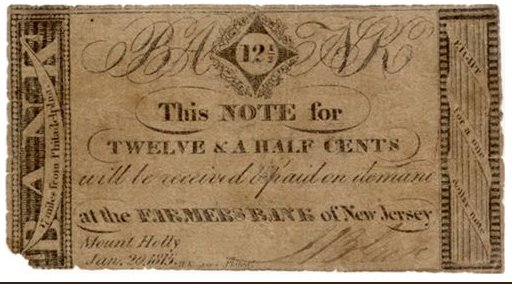 BANK
12½
This NOTE for
TWELVE & A HALF CENTS
will be received & paid on demand
at the FARMERS BANK of New Jersey
Mount Holly
Jan. 20, 1815.
BANK
miles from Philadelphia.
EIGHT
for a one
dollar note.